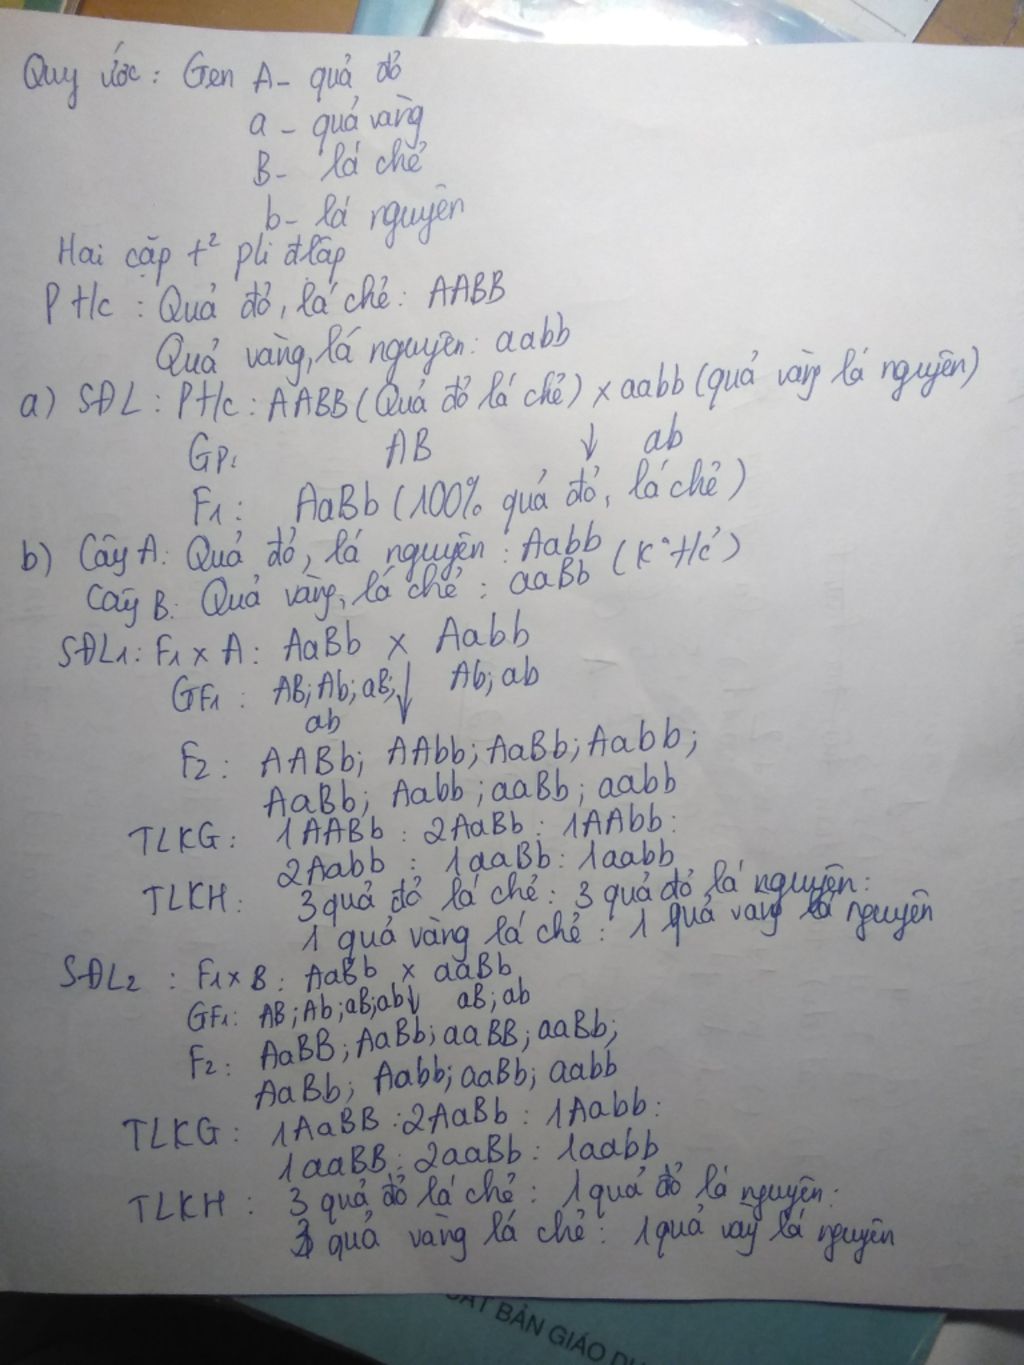 Quy ước: Gen A- quả đỏ
a - quả vàng
B- lá chẻ
b- lá nguyên
Hai cặp t² pli đlập
P t/c : Quả đỏ, lá chẻ: AABB
Quả vàng, lá nguyên: aabb
a) SĐL : Pt/c : AABB (Quả đỏ lá chẻ) x aabb (quả vàng lá nguyên)
GP: AB ↓ ab
F1 : AaBb (100% quả đỏ, lá chẻ)
b) Cây A: Quả đỏ, lá nguyên : Aabb (K° t/c)
Cây B: Quả vàng, lá chẻ : aaBb
SĐL1: F1 x A: AaBb x Aabb
GF1 : AB; Ab; aB; ↓ Ab; ab
ab
F2 : AABb; AAbb; AaBb; Aabb;
AaBb; Aabb; aaBb; aabb
TLKG: 1AABb : 2AaBb : 1AAbb:
2Aabb : 1aaBb: 1aabb
TLKH: 3 quả đỏ lá chẻ: 3 quả đỏ lá nguyên:
1 quả vàng lá chẻ : 1 quả vàng lá nguyên
SĐL2 : F1 x B : AaBb x aaBb
GF1: AB; Ab; aB; ab ↓ aB; ab
F2: AaBB; AaBb; aaBB; aaBb;
AaBb; Aabb; aaBb; aabb
TLKG : 1AaBB : 2AaBb : 1Aabb:
1aaBB : 2aaBb : 1aabb
TLKH : 3 quả đỏ lá chẻ : 1 quả đỏ lá nguyên:
3 quả vàng lá chẻ : 1 quả vàg lá nguyên
BẢN GIÁO